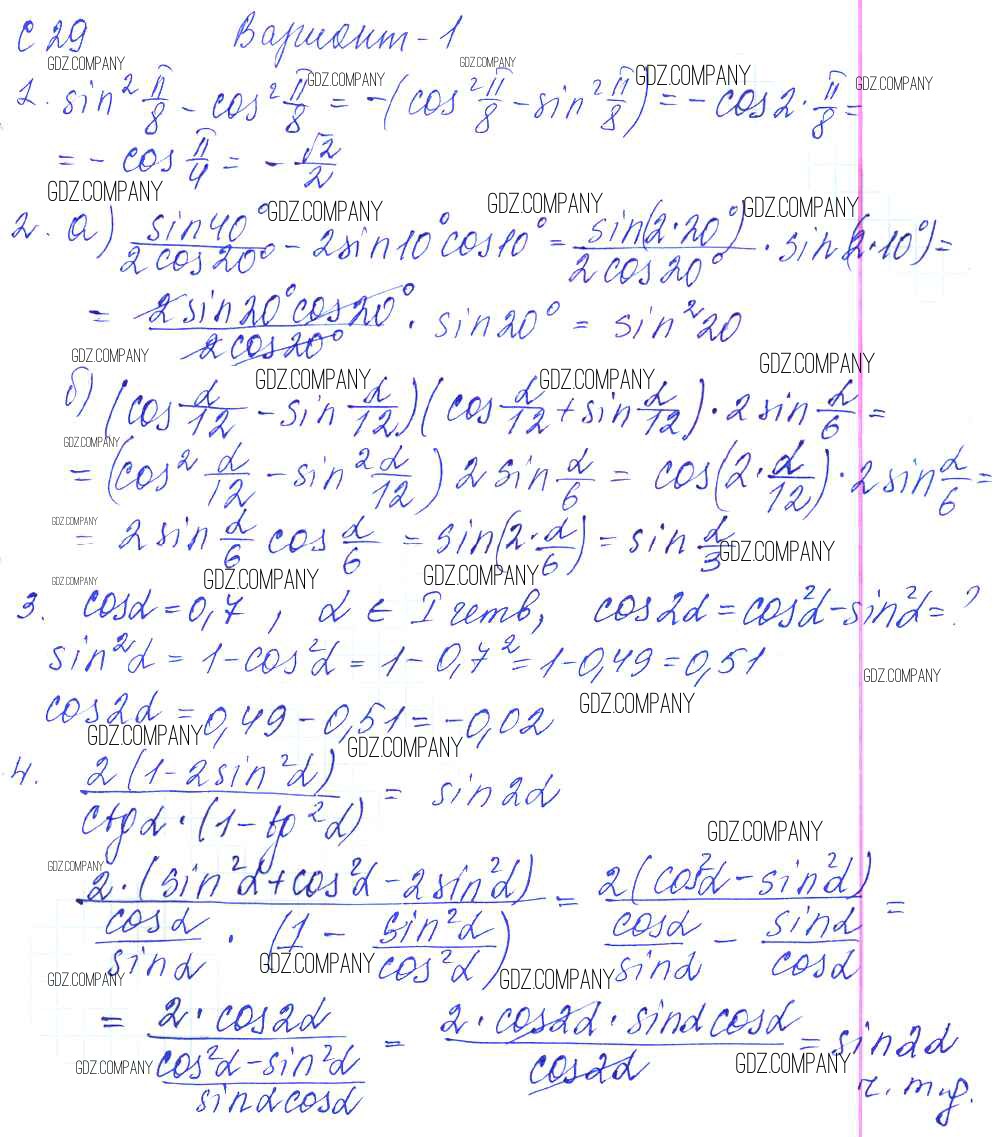 С 29 Вариант-1
GDZ.COMPANY GDZ.COMPANY GDZ.COMPANY GDZ.COMPANY GDZ.COMPANY
1. sin² π/8 - cos² π/8 = -(cos² π/8 - sin² π/8) = - cos 2 · π/8 =
= - cos π/4 = - √2/2
GDZ.COMPANY GDZ.COMPANY GDZ.COMPANY GDZ.COMPANY
2. а) sin40°/2cos20° - 2sin10°cos10° = sin(2·20°)/2cos20° · sin(2·10°) =
= 2sin20°cos20°/2cos20° · sin20° = sin²20
GDZ.COMPANY GDZ.COMPANY GDZ.COMPANY GDZ.COMPANY
б) (cos α/12 - sin α/12)(cos α/12 + sin α/12) · 2 sin α/6 =
GDZ.COMPANY
= (cos² α/12 - sin² α/12) 2 sin α/6 = cos(2 · α/12) · 2 sin α/6 =
GDZ.COMPANY
= 2 sin α/6 cos α/6 = sin(2 · α/6) = sin α/3
GDZ.COMPANY
GDZ.COMPANY GDZ.COMPANY GDZ.COMPANY
3. cosα = 0,7 , α ∈ I четв, cos2α = cos²α - sin²α = ?
sin²α = 1 - cos²α = 1 - 0,7² = 1 - 0,49 = 0,51
GDZ.COMPANY
cos2α = 0,49 - 0,51 = -0,02
GDZ.COMPANY
GDZ.COMPANY GDZ.COMPANY
4. 2(1 - 2sin²α)/ctgα · (1 - tg²α) = sin2α
GDZ.COMPANY
GDZ.COMPANY
2 · (sin²α + cos²α - 2sin²α)/cosα/sinα · (1 - sin²α/cos²α) = 2(cos²α - sin²α)/cosα/sinα - sinα/cosα =
GDZ.COMPANY GDZ.COMPANY GDZ.COMPANY
= 2 · cos2α/cos²α - sin²α/sinα cosα = 2 · cos2α · sinα cosα/cos2α = sin2α
GDZ.COMPANY GDZ.COMPANY
ч. т. д.